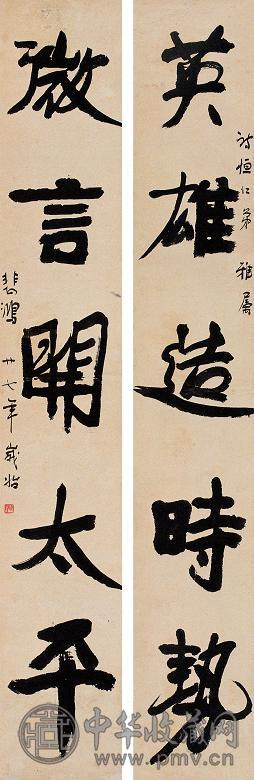 英雄造時勢
恒仁弟雅屬
微言開太平
悲鴻 廿七年歲始
中华收藏网
www.pmv.cn